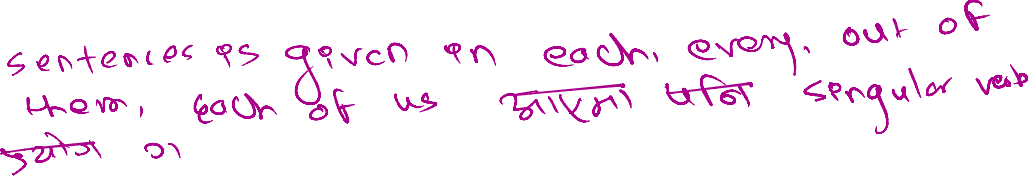 sentences is given in each, every, out of
them, each of us आएमा पनि singular verb
प्रयोग गर